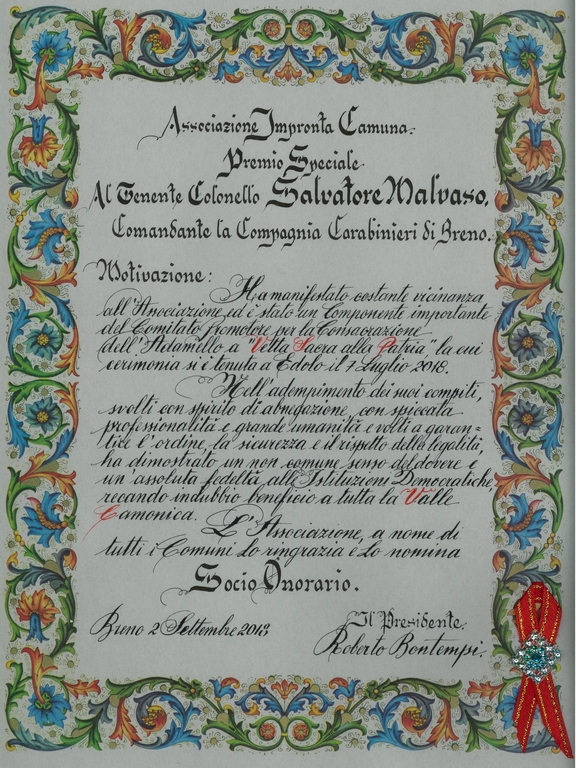 Associazione Impronta Camuna.
Premio Speciale
Al Tenente Colonello Salvatore Malvaso,
Comandante la Compagnia Carabinieri di Breno.
Motivazione:
Ha manifestato costante vicinanza
all'Associazione ed è stato un Componente importante
del Comitato Promotore per la Consacrazione
dell'Adamello a "Vetta Sacra alla Patria", la cui
cerimonia si è tenuta a Edolo il 7 Luglio 2018.
Nell'adempimento dei suoi compiti,
svolti con spirito di abnegazione, con spiccata
professionalità e grande umanità e volti a garan-
tire l'ordine, la sicurezza e il rispetto della legalità,
ha dimostrato un non comune senso del dovere e
un'assoluta fedeltà alle Istituzioni Democratiche,
recando indubbio beneficio a tutta la Valle
Camonica.
L'Associazione, a nome di
tutti i Comuni Lo ringrazia e Lo nomina
Socio Onorario.
Breno 2 Settembre 2018
Il Presidente.
Roberto Bontempi.